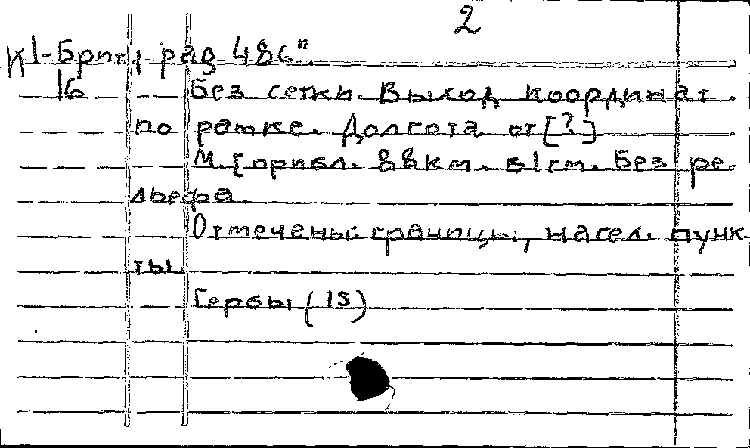 2
К 1-Брит, рад 486"
16 Без сетки. Выход координат
по рамке. Долгота от [?]
М. [орибл. 88км. в 1см. Без ре-
льефа.
Отмечены: границы, насел. пунк
ты.
Гербы (15)